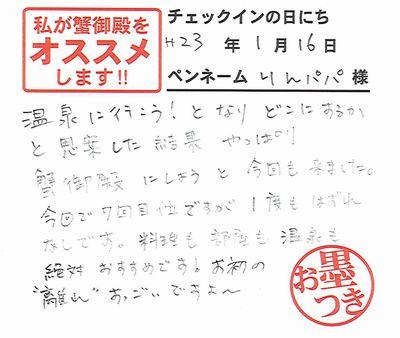 私が蟹御殿を
オススメ
します!!
チェックインの日にち
H23 年 1 月 16 日
ペンネーム りんパパ 様
温泉に行こう! となり どこにするか
と思案した結果 やっぱり
蟹御殿 にしようと 今回も来ました。
今回で7回目位ですが 1度もはずれ
なしです。料理も部屋も温泉も
絶対おすすめです! お初の
"離れ" すっごいですよ〜
お墨つき